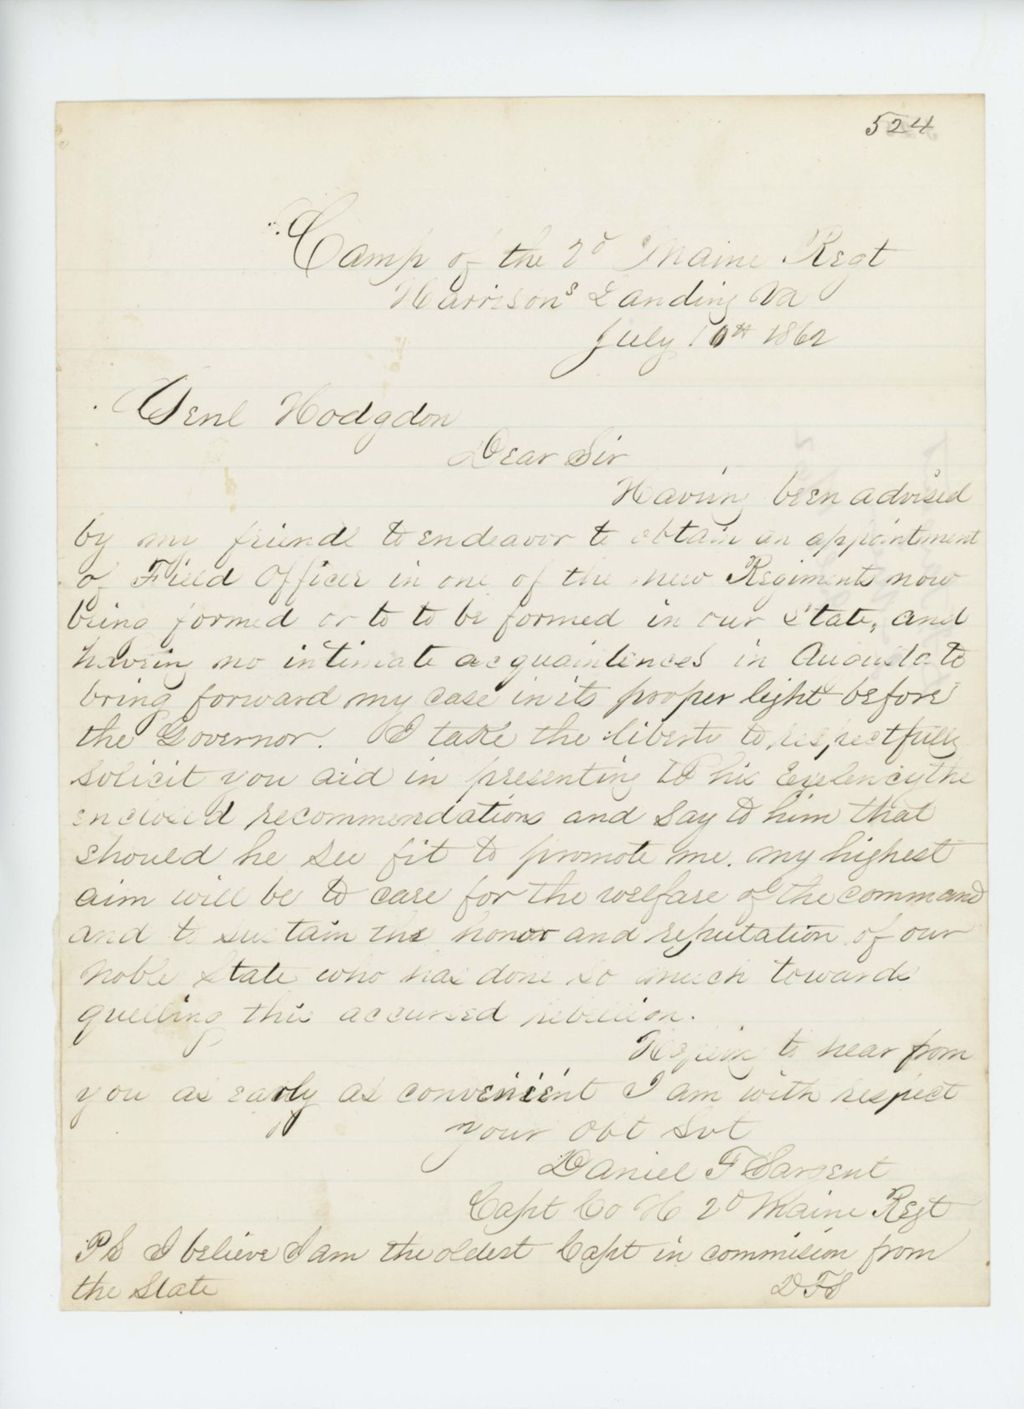 524
Camp of the 2d Maine Regt
Harrisons Landing Va
July 10th 1862
Genl Hodgdon
Dear Sir
Having been advised
by my friends to endeavor to obtain an appointment
of Field Officer in one of the new Regiments now
being formed or to to be formed in our State, and
having no intimate acquaintences in Augusta to
bring forward my case in its proper light before
the Governor. I take the liberty to, respectfully
solicit you aid in presenting to his Exelency the
enclosed recommendations and say to him that
should he see fit to promote me. my highest
aim will be to care for the welfare of the command
and to sustain the honor and reputation of our
noble State who has done so much towards
quelling this accursed rebellion.
Hopeing to hear from
you as early as convenient I am with respect
your Obt Svt
Daniel F Sargent
Capt Co H 2d Maine Regt
PS I believe I am the oldest Capt in commision from
the State
DFS